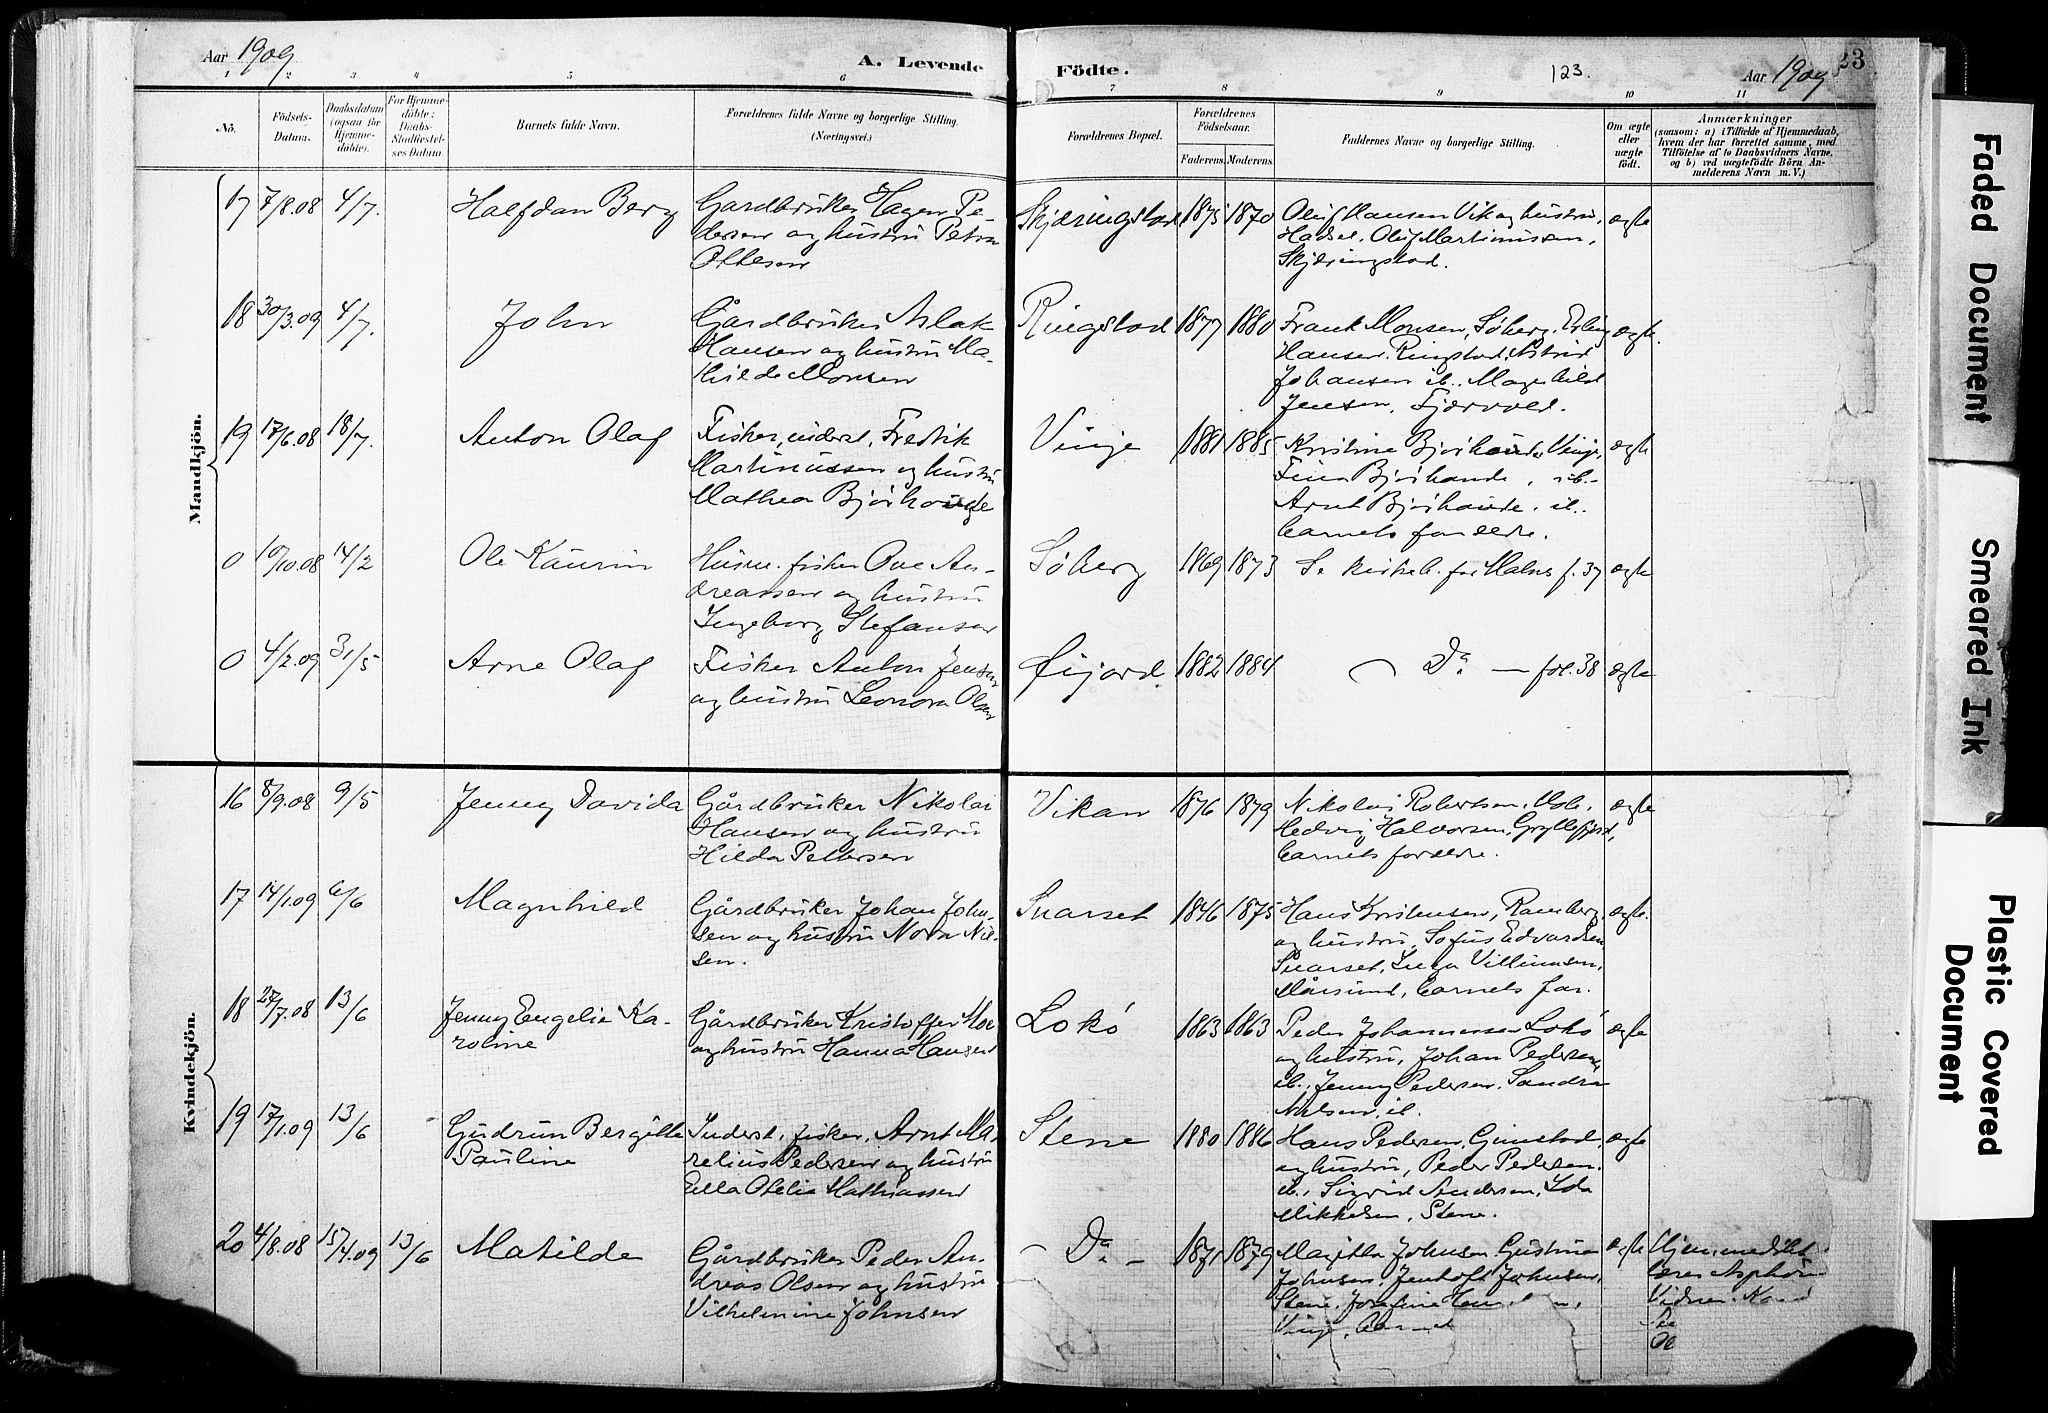 Aar 1909
A. Levende
Födte.
123.
Aar 1909
23
1 2 3 4 5 6 7 8 9 10 11
No.
Födsels-
Datum.
Daabsdatum
(ogsaa for
Hjemme-
döbte).
For Hjemme-
döbte:
Daabs-
Stadfæstel-
ses Datum
Barnets fulde Navn.
Forældrenes fulde Navne og borgerlige Stilling.
(Næringsvei.)
Forældrenes Bopæl.
Forældrenes
Födselsaar.
Faderens. Moderens.
Faddernes Navne og borgerlige Stilling.
Om ægte
eller
uægte
födt.
Anmærkninger
(saasom: a) i Tilfælde af Hjemmedaab,
hvem der har forrettet samme, med
Tilföielse af to Daabsvidners Navne,
og b) ved uægtefödte Börn An-
melderens Navn m. V.)
Mandkjön.
17 7/8.08 4/7. Halfdan Berg
Gardbruker Hagen Pe-
dersen og hustru Petra
Ottesen
Skjæringstad 1875 1870
Oluf Hansen Vik og hustru,
Hadsel. Oluf Martinussen,
Skjæringstad.
ægte
18 30/3.09 4/7. John
Gårdbruker Aslak
Hansen og hustru Ma-
thilde Monsen
Ringstad 1877 1880
Frank Monsen, Søberg, Erling
Hansen. Ringstad, Astrid
Johansen ib.. Magnhild
Jensen, Fjærvold.
ægte.
19 17/6.08 18/7. Anton Olaf
Fisker, inderst, Fredrik
Martinussen og hustru
Mathea Bjørhovde
Vinje 1881 1885
Kristine Bjørhovde Vinje,
Fina Bjørhovde, ib.-
Arnt Bjørhovde. ib..
barnets foreldre.
ægte
0 10/10.08 14/2 Ole Kaurin
Husm. fisker Ove An-
dreassen og hustru
Ingeborg Stefansen
Søberg 1869 1873
Se kirkeb. for Malnes f. 37
ægte
0 4/2.09 31/5 Arne Olaf
Fisker Anton Jensen
og hustru Leonora Olsen
Øijord 1882 1884
— Do — fol. 38
ægte
Kvindekjön.
16 8/9.08 9/5 Jenny Davida
Gårdbruker Nikolai
Hansen og hustru
Hilda Pettersen
Vikan 1876 1879
Nikolai Robertsen.
Hedvig Halvorsen, Gryllefjord,
barnets foreldre.
ægte
17 14/1.09 6/6 Magnhild
Gårdbruker Johan John-
sen og hustru Nora Nil-
sen.
Snarset 1846 1875
Hans Kristensen, Ramberg
og hustru, Sofus Edvardsen
Snarset, Inga Villumsen,
barnets far.
ægte.
18 27/7.08 13/6 Jenny Engelie Ka-
roline
Gårdbruker Kristoffer Moe
og hustru Hanna Hansen
Lokø 1863 1863
Peder Johannessen Lokø
og hustru, Johan Pedersen,
ib., Jenny Pedersen. Sandra
Nielsen, ib.
ægte
19 17/1.09 13/6 Gudrun Bergitte
Pauline
Inderst, fisker, Arnt Ma-
relius Pedersen og hustru
Ella Otelie Mathiassen
Stene 1880 1886
Hans Pedersen, Gimstad
og hustru, Peder Pedersen.
ib., Sigrid Andersen, Ida
Mikkelsen, Stene.
ægte
20 4/8.08 15/4.09 13/6 Matilde
Gårdbruker Peder An-
dreas Olsen og hustru
Vilhelmine Johnsen
— Do — 1871 1879
Magitta Johnsen, Gustava
Johnsen, Jentoft Johnsen,
Stene. Josefine
Vinje,
ægte
Hjemmedøbt
Vidner.
Faded Document
Smeared Ink
Plastic Covered
Document